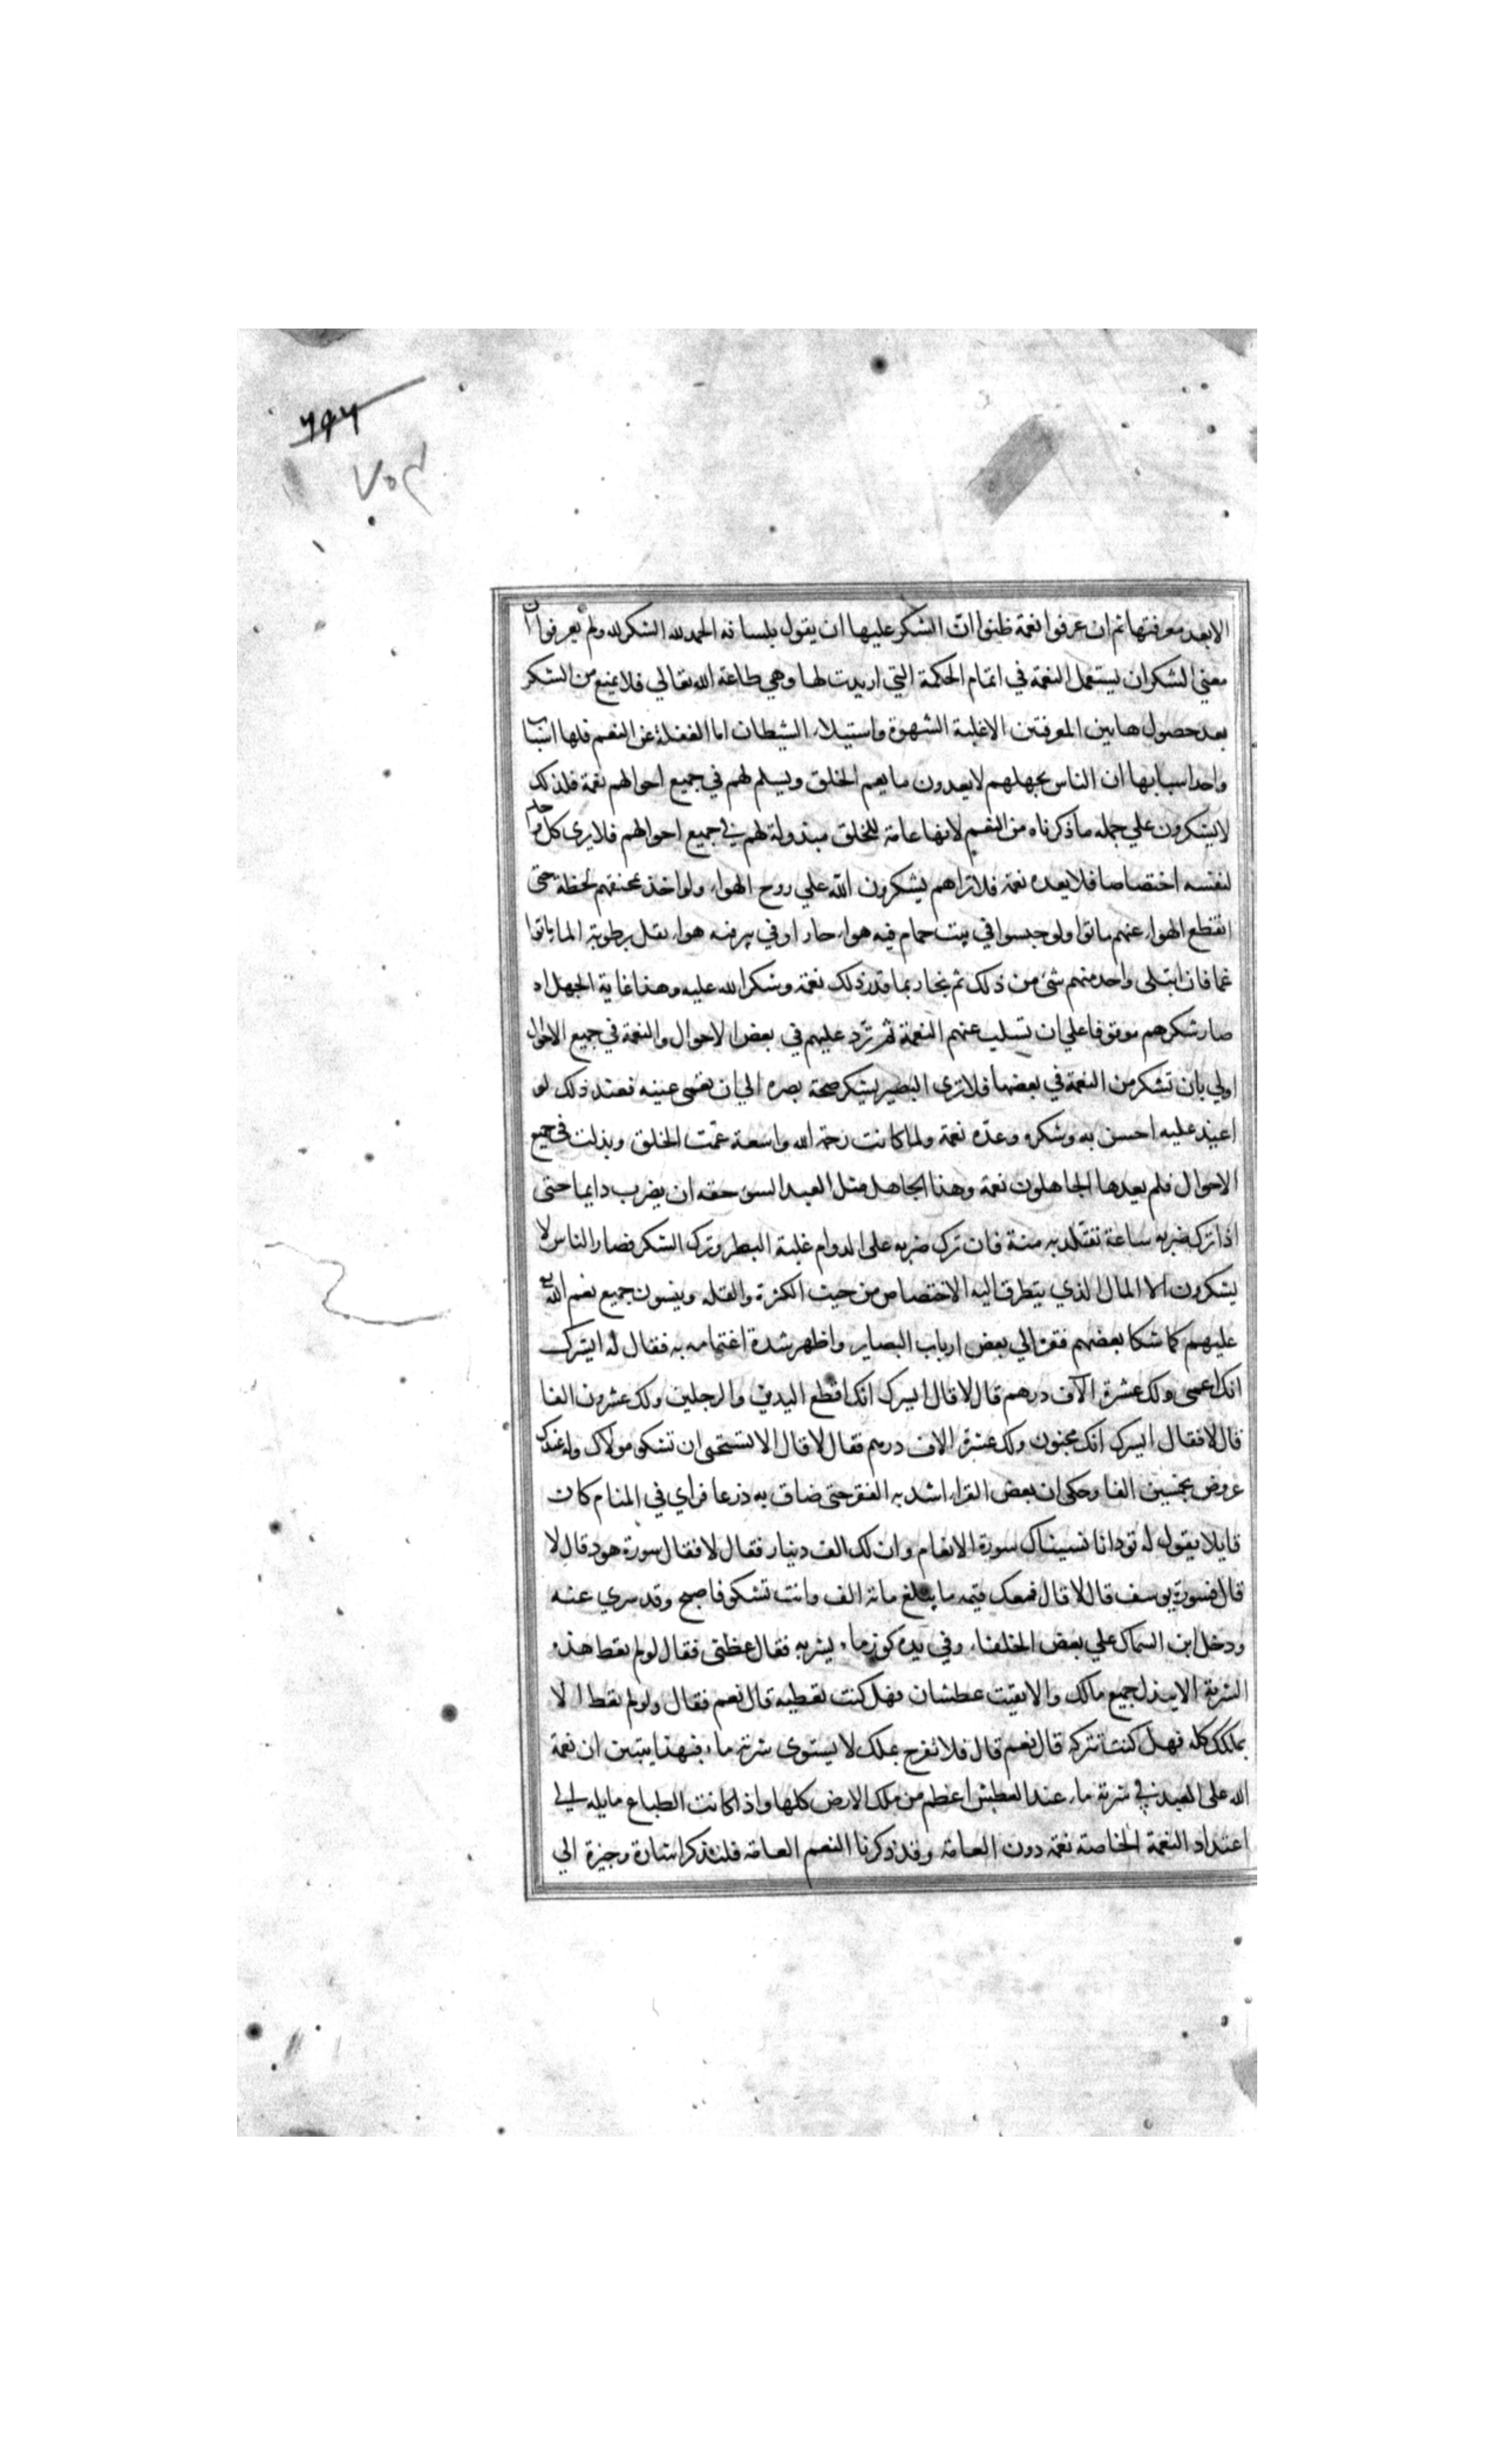 ٦٩٦
٧٥٤
الا بعد معرفتها ثم ان عرفوا نعمة ظنوا ان الشكر عليها ان يقول بلسانه الحمد لله الشكر لله ولم يعرفوا ان
معني الشكر ان يستعمل النعمة في اتمام الحكمة التي اريدت لها وهي طاعة الله تعالي فلا يمنع من الشكر
بعد حصول هاتين المعرفتين الا غلبة الشهوة واستيلاء الشيطان اما الغفلة عن النعم فلها اسباب
واحد اسبابها ان الناس بجهلهم لا يعدون ما يعم الخلق ويسلم لهم في جميع احوالهم نعمة فلذلك
لا يشكرون علي جمله ما ذكرناه من النعم لانها عامة للخلق مبذولة لهم في جميع احوالهم فلا يري كل واحد
لنفسه اختصاصا فلا يعده نعمة فلا تراهم يشكرون الله علي روح الهواء ولو اخذ بمخنقهم لحظة حتى
انقطع الهواء عنهم ماتوا ولو حبسوا في بيت حمام فيه هواء حار او في بير فيه هواء ثقل برطوبة الما ماتوا
غما فان ابتلى واحد منهم شئ من ذلك ثم نجا ربما قدر ذلك نعمة وشكر الله عليه وهذا غاية الجهل اذ
صار شكرهم موقوفا علي ان تسلب عنهم النعمة ثم ترد عليهم في بعض الاحوال والنعمة في جميع الاحوال
اولي بان تشكر من النعمة في بعضها فلا تري البصير يشكر صحة بصره الي ان تعمى عينيه فعند ذلك لو
اعيد عليه احسن به وشكره وعده نعمة ولما كانت رحمة الله واسعة عمت الخلق وبذلت في جميع
الاحوال فلم يعدها الجاهلون نعمة وهذا الجاهل مثل العبد السوء حقه ان يضرب دايما حتى
اذا ترك ضربه ساعة تقلد به منة فان ترك ضربه على الدوام غلبة البطر وترك الشكر فصار الناس لا
يشكرون الا المال الذي يتطرق اليه الاختصاص من حيث الكثرة والقله وينسون جميع نعم الله
عليهم كما شكا بعضهم فقره الي بعض ارباب البصاير واظهر شدة اغتمامه به فقال له ايسرك
انك اعمى ولك عشرة الآف درهم قال لا قال ايسرك انك اقطع اليدين والرجلين ولك عشرون الفا
قال لا فقال ايسرك انك مجنون ولك عشرة الاف درهم فقال لا قال الا تستحى ان تشكو مولاك وله عندك
عروض بخمسين الفا وحكى ان بعض القراء اشد به الفقر حتى ضاق به ذرعا فراي في المنام كان
قايلا يقول له تود انا نسيناك سورة الانعام وان لك الف دينار فقال لا فقال سورة هود قال لا
قال فسورة يوسف قال لا قال فمعك قيمه ما يبلغ مائة الف وانت تشكو فاصبح وقد سري عنه
ودخل ابن السماك علي بعض الخلفاء وفي يده كوز ماء يشربه فقال عظنى فقال لو لم تعط هذه
الشربة الا ببذل جميع مالك والا بقيت عطشان فهل كنت تعطيه قال نعم فقال ولو لم تعط الا
بملكك كله فهل كنت تتركه قال نعم قال فلا تفرح بملك لا يستوى شربة ماء فبهذا يتبين ان نعمة
الله على العبد في شربة ماء عند العطش اعظم من ملك الارض كلها واذا كانت الطباع مايله الي
اعتداد النعمة الخاصة نعمة دون العامة وقد ذكرنا النعم العامة فلنذكر اشارة وجيزة الي